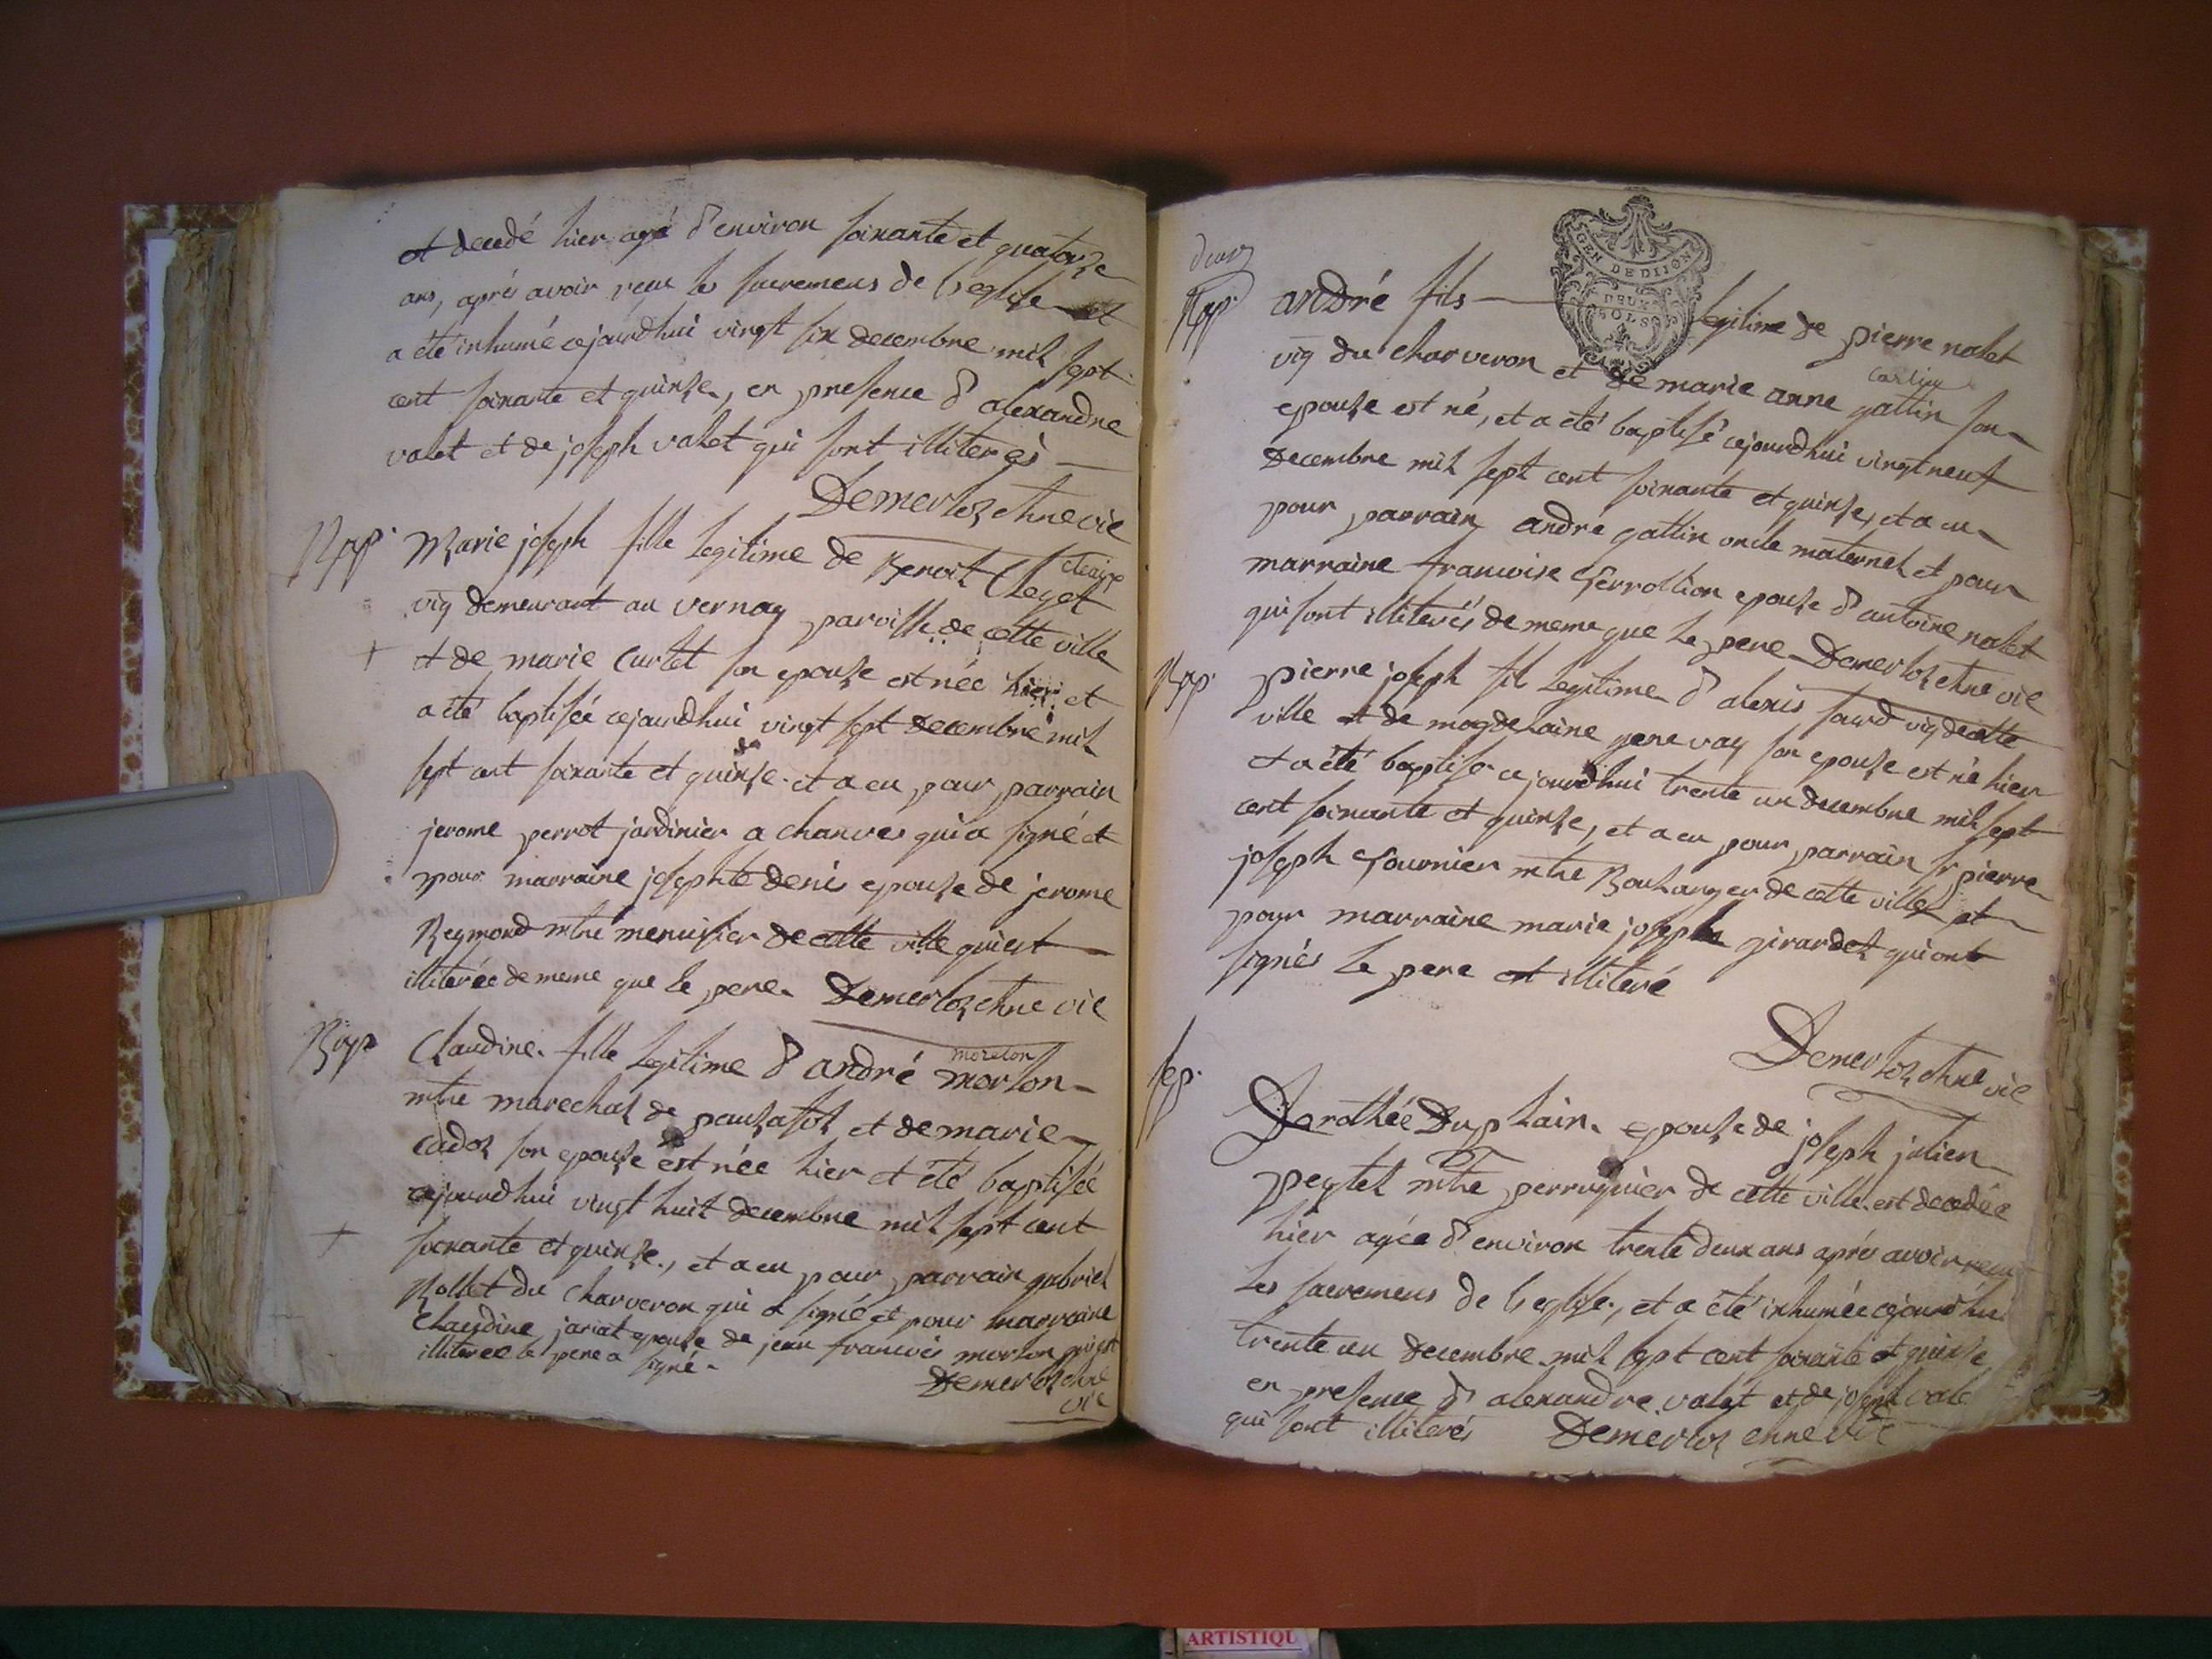 et decedé hier agé d'environ soixante et quatorze
ans, aprés avoir reçu les sacremens de l'eglise et
a eté inhumé cejourdhui vingt six decembre mil sept
cent soixante et quinze, en presence d'alexandre
valet et de joseph valet qui sont illiterés
Demerloz chne vie
Bap. Marie joseph fille legitime de Benoit Cleyet
vig demeurant au vernay paroisse de cette ville
+ et de marie curtet son epouse est née hier et
a eté baptisée cejourdhui vingt sept decembre mil
sept cent soixante et quinze. et a eu pour parrain
jerome perrot jardinier a chanves qui a signé et
pour marraine josephte denis epouse de jerome
Reymond mtre menuisier de cette ville qui est
illiterée de meme que le pere. Demerloz chne vie
Bap Claudine. fille legitime d'andré morton
moreton
mtre marechal de pouzafol et de marie
cadoz son epouse est née hier et été baptisée
cejourdhui vingt huit decembre mil sept cent
+ soixante et quinze., et a eu pour parrain gabriel
Rollet du charveron qui a signé et pour marraine
Claudine jariat epouse de jean francois morton qui est
illiterée le pere a signé.
Demerloz chne
vie
deux
Bap. andré fils legitime de pierre nalet
GEN DE DIJON
DEUX
SOLS
vig du charveron et de marie anne gattin son
epouse est né, et a eté baptisé cejourdhui vingt neuf
decembre mil sept cent soixante et quinze, et a eu
pour parrain andre gattin oncle maternel et pour
marraine francoise ferrollion epouse d'antoine nalet
qui sont illiterés de meme que le pere Demerloz chne vie
Bap. pierre joseph fils legitime d'alexis savd vig de cette
ville et de magdelaine genevay son epouse est né hier
et a été baptisé cejourdhui trente un decembre mil sept
cent soixante et quinze, et a eu pour parrain sr pierre
joseph fournier mtre Boulanger de cette ville et
pour marraine marie joseph girardet qui ont
signés le pere est illiteré
Demerloz chne vie
sep.
Derothée Duplain. epouse de joseph julien
peytel mtre perruquier de cette ville. est decedée
hier agée d'environ trente deux ans aprés avoir reçu
les sacremens de l'eglise., et a été inhumée cejourdhui
trente un decembre mil sept cent soixante et quinze
en presence d'alexandre valet et de joseph vale
qui sont illiterés Demerloz chne vie